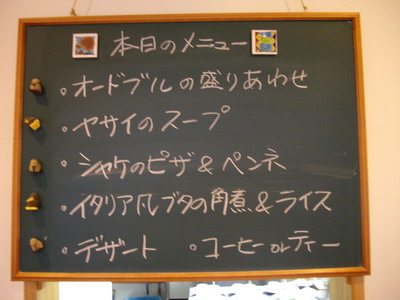 本日のメニュー
・オードブルの盛りあわせ
・ヤサイのスープ
・シャケのピザ&ペンネ
・イタリア風ブタの角煮&ライス
・デザート ・コーヒーorティー